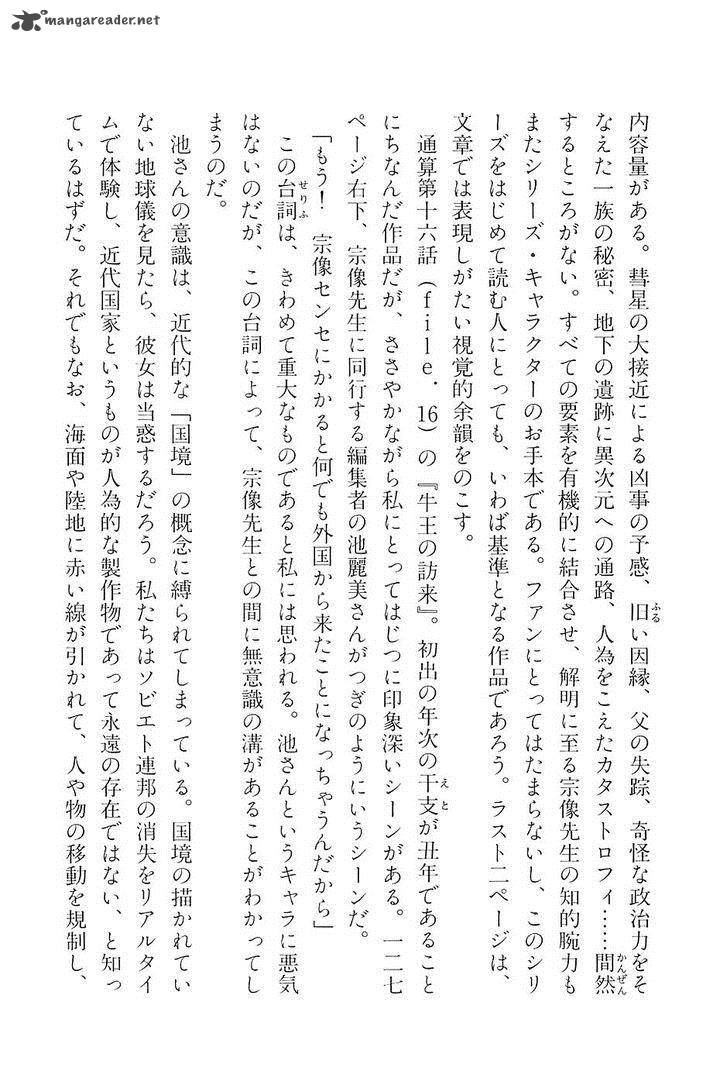 mangareader.net
内容量がある。彗星の大接近による凶事の予感、旧い因縁、父の失踪、奇怪な政治力をそ
なえた一族の秘密、地下の遺跡に異次元への通路、人為をこえたカタストロフィ……間然
するところがない。すべての要素を有機的に結合させ、解明に至る宗像先生の知的腕力も
またシリーズ・キャラクターのお手本である。ファンにとってはたまらないし、このシリ
ーズをはじめて読む人にとっても、いわば基準となる作品であろう。ラスト二ページは、
文章では表現しがたい視覚的余韻をのこす。
通算第十六話（file．16）の『牛王の訪来』。初出の年次の干支が丑年であること
にちなんだ作品だが、ささやかながら私にとってはじつに印象深いシーンがある。一二七
ページ右下、宗像先生に同行する編集者の池麗美さんがつぎのようにいうシーンだ。
「もう！　宗像センセにかかると何でも外国から来たことになっちゃうんだから」
この台詞は、きわめて重大なものであると私には思われる。池さんというキャラに悪気
はないのだが、この台詞によって、宗像先生との間に無意識の溝があることがわかってし
まうのだ。
池さんの意識は、近代的な「国境」の概念に縛られてしまっている。国境の描かれてい
ない地球儀を見たら、彼女は当惑するだろう。私たちはソビエト連邦の消失をリアルタイ
ムで体験し、近代国家というものが人為的な製作物であって永遠の存在ではない、と知っ
ているはずだ。それでもなお、海面や陸地に赤い線が引かれて、人や物の移動を規制し、
ふる
かんぜん
えと
せりふ